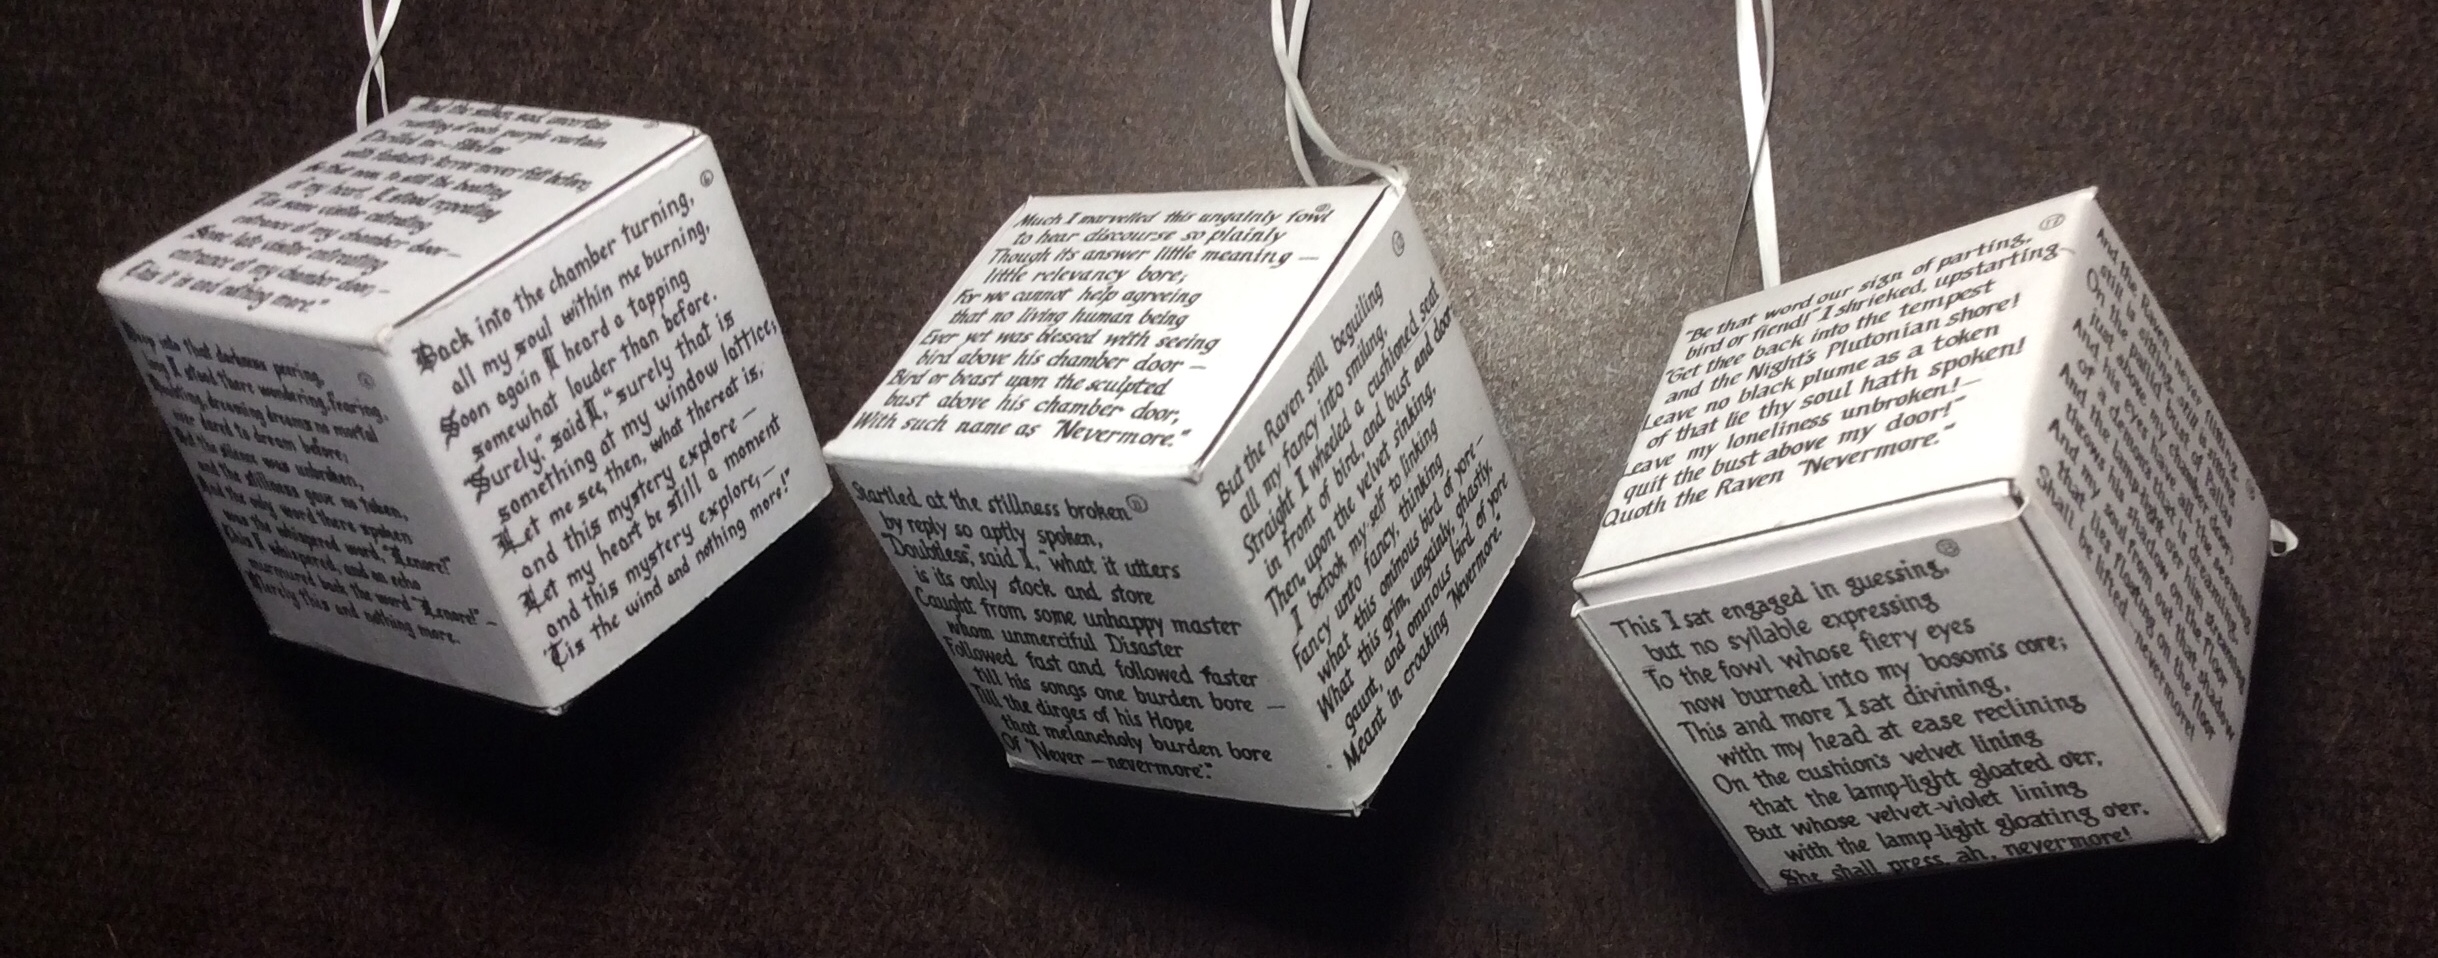 And the silken, sad, uncertain
rustling of each purple curtain
Thrilled me — filled me
with fantastic terrors never felt before;
So that now, to still the beating
of my heart, I stood repeating
"Tis some visitor entreating
entrance at my chamber door —
Some late visitor entreating
entrance at my chamber door; —
This it is and nothing more."
Deep into that darkness peering,
long I stood there wondering, fearing,
Doubting, dreaming dreams no mortal
ever dared to dream before;
But the silence was unbroken,
and the stillness gave no token,
And the only word there spoken
was the whispered word, "Lenore!"
This I whispered, and an echo
murmured back the word "Lenore!" —
Merely this and nothing more.
Back into the chamber turning,
all my soul within me burning,
Soon again I heard a tapping
somewhat louder than before.
"Surely," said I, "surely that is
something at my window lattice;
Let me see, then, what thereat is,
and this mystery explore —
Let my heart be still a moment
and this mystery explore, —
'Tis the wind and nothing more!"
Much I marvelled this ungainly fowl
to hear discourse so plainly
Though its answer little meaning —
little relevancy bore;
For we cannot help agreeing
that no living human being
Ever yet was blessed with seeing
bird above his chamber door —
Bird or beast upon the sculpted
bust above his chamber door,
With such name as "Nevermore."
Startled at the stillness broken
by reply so aptly spoken,
"Doubtless", said I, "what it utters
is its only stock and store
Caught from some unhappy master
whom unmerciful Disaster
Followed fast and followed faster
till his songs one burden bore —
Till the dirges of his Hope
that melancholy burden bore
Of "Never — nevermore"."
But the Raven still beguiling
all my fancy into smiling,
Straight I wheeled a cushioned seat
in front of bird, and bust and door;
Then, upon the velvet sinking,
I betook my self to linking
Fancy unto fancy, thinking
what this ominous bird of yore —
What this grim, ungainly, ghastly,
gaunt, and ominous bird of yore
Meant in croaking "Nevermore."
"Be that word our sign of parting,
bird or fiend!" I shrieked, upstarting —
"Get thee back into the tempest
and the Night's Plutonian shore!
Leave no black plume as a token
of that lie thy soul hath spoken!
Leave my loneliness unbroken! —
quit the bust above my door!"
Quoth the Raven "Nevermore."
This I sat engaged in guessing,
but no syllable expressing
To the fowl whose fiery eyes
now burned into my bosom's core;
This and more I sat divining,
with my head at ease reclining
On the cushion's velvet lining
that the lamp-light gloated o'er,
But whose velvet-violet lining
with the lamp-light gloating o'er,
She shall press, ah, nevermore!
And the Raven, never flitting,
still is sitting, still is sitting
On the pallid bust of Pallas
just above my chamber door;
And his eyes have all the seeming
of a demon's that is dreaming,
And the lamp-light o'er him streaming
throws his shadow on the floor
And my soul from out that shadow
that lies floating on the floor
Shall be lifted — nevermore!